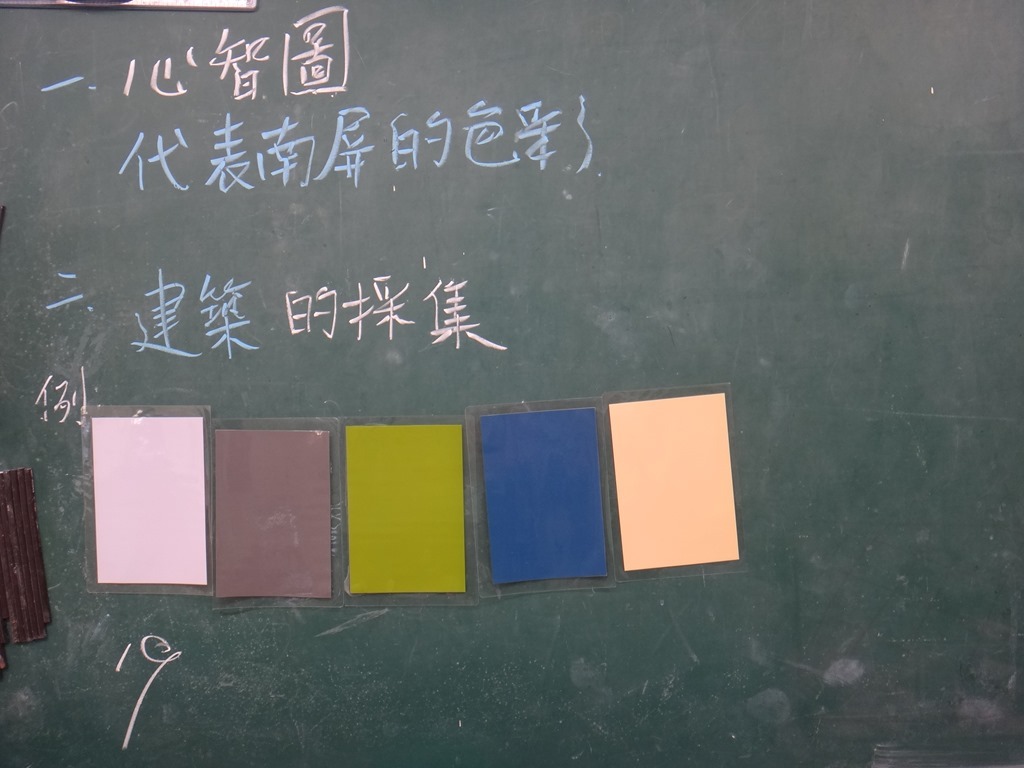 一. 心智圖
代表南屏的色彩
二. 建築的採集
例
19